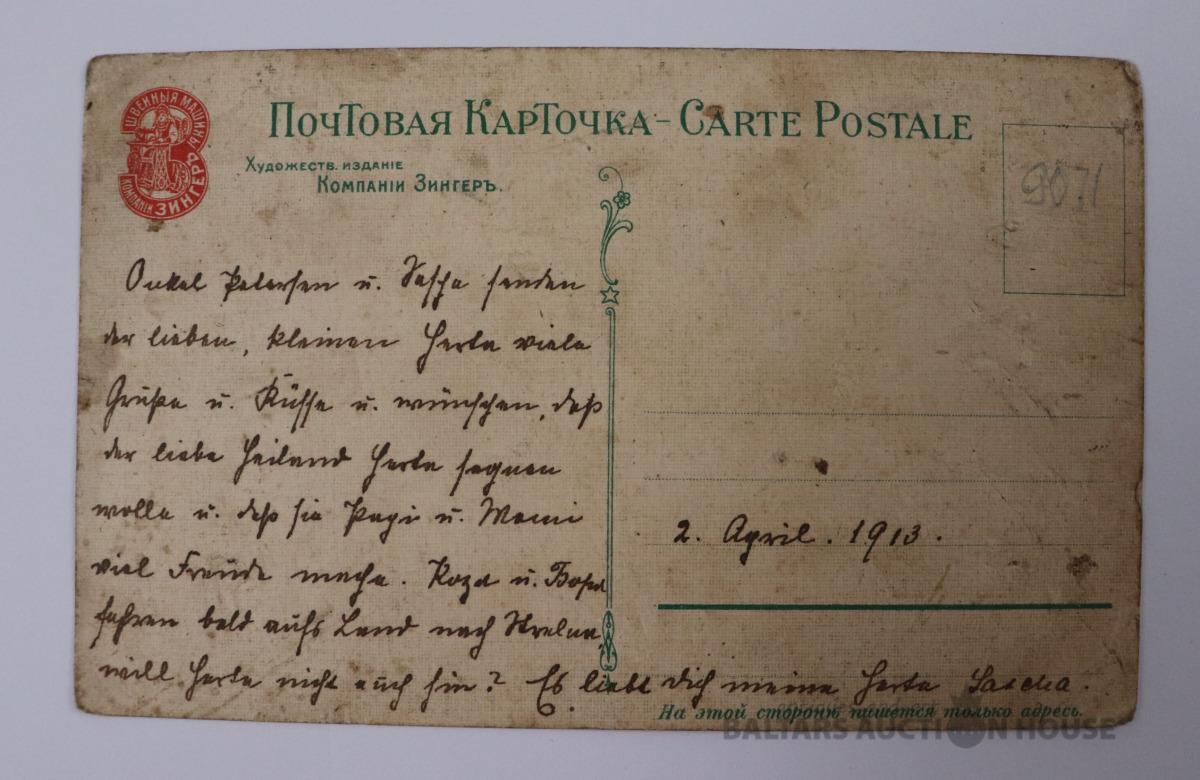 ШВЕЙНЫЯ МАШИНЫ
КОМПАНIИ ЗИНГЕРЪ
ПОЧТОВАЯ КАРТОЧКА – CARTE POSTALE
ХУДОЖЕСТВ. ИЗДАНIЕ
КОМПАНIИ ЗИНГЕРЪ.
9071
Onkel Petersen u. Sascha senden
der lieben, kleinen Herta viele
Grüße u. Küsse u. wünschen, daß
der liebe Heiland Herta segnen
wolle u. daß sie Papi u. Mami
viel Freude mache. u.
fahren bald aufs Land nach Strelna,
will Herta nicht auch hin? Es liebt dich meine Herta Sascha.
2. April. 1913.
На этой сторонѣ пишется только адресъ.
BALTARS AUCTION HOUSE